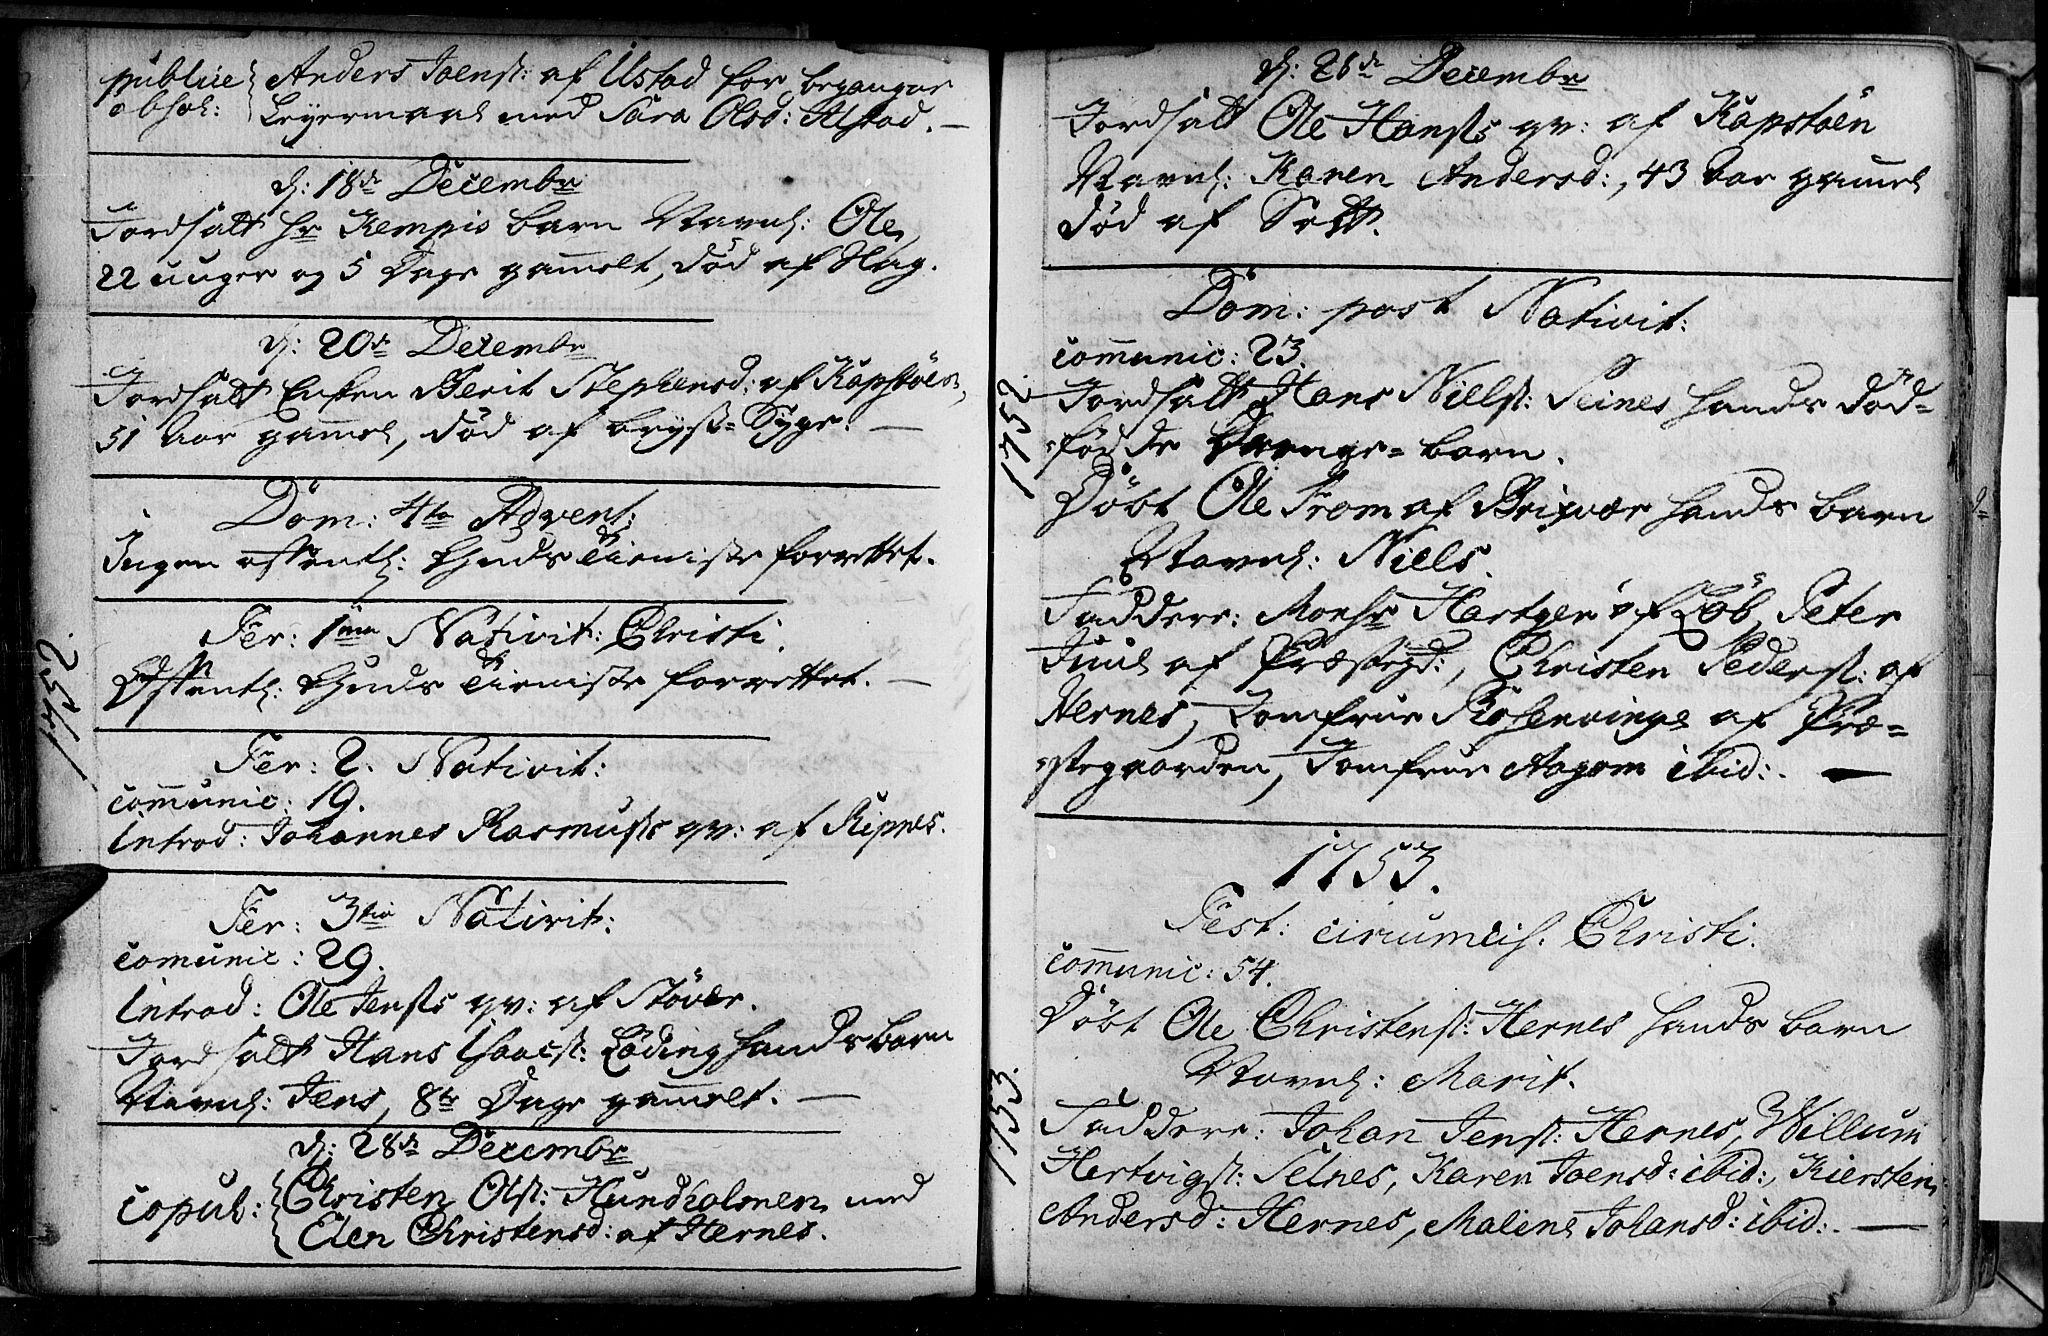 publice obsol: Anders Joens: af Ustad for begangne
Leyermaal med Sara Olsd: Alstad.
d: 18de Decembr
Jordfæst hr Kempis barn Navnl: Ole,
22 uuger og 5 Dage gammelt, død af Hag.
d: 20de Decembr
Jordfæst Enken Berit Stephensd: af Kapstöen,
51 Aar gammel, död af bryst-Syge.
Dom: 4ta Advent:
Ingen offentl: Guds Tieniste forrettet.
Fer: 1ma Nativit: Christi.
Offentl: Guds Tieniste forrettet.
1752.
Fer: 2. Nativit:
communic: 19.
introd: Johannes Rasmuss qv: af Ripnes.
Fer: 3tia Nativit:
comunic: 29.
introd: Ole Jens's qv: af Stöver.
Jordfæst Hans Isaacs: Löding hands barn
Navnl: Jens, 8te Dage gammelt.
d: 28de Decembr
copul: Christen Ols: Hundholmen med
Elen Christensd: af Hernes.
d: 28de Decembr
Jordfæst Ole Hans's qv: af Kapstöen
Navnl: Karen Andersd:, 43 Aar gammel
död af Sott.
Dom: post Nativit:
communic: 23.
1752.
Jordfæst Hans Niells: Seines hands död-
födde Drenge-barn.
Döbt Ole From af Brixvær hands barn
Navnl: Niells.
Faddere: Monsr Hertzen af Löb, Peter
Juul af Præstegd:, Christen Peders: af
Hernes, Jomfrue Rosenvinge af Præ-
stegaarden, Jomfrue Aagom ibid:.
1753.
Fest: circumcis. Christi.
communic: 54.
Döbt Ole Christens: Hernes hands barn
Navnl: Marit.
1753.
Faddere: Johan Jens: Hernes, Willum
Hertvigs: Selnes, Karen Joensd: ibid:, Kiersten
Andersd: Hernes, Malene Johansd: ibid:.